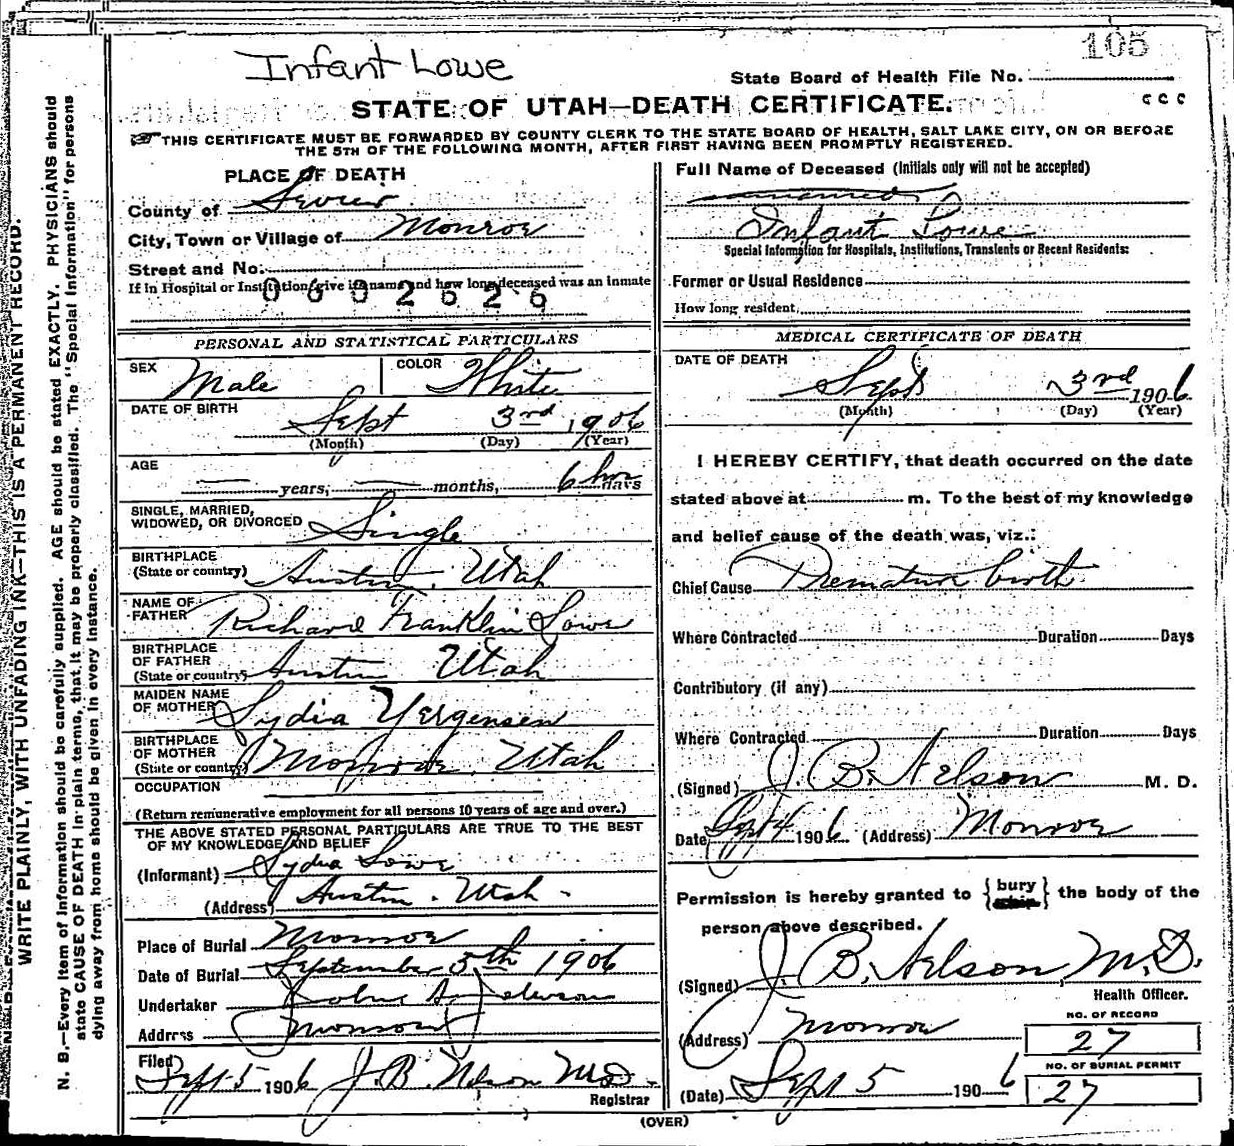 105
Infant Lowe
State Board of Health File No.
STATE OF UTAH—DEATH CERTIFICATE.
c c c
THIS CERTIFICATE MUST BE FORWARDED BY COUNTY CLERK TO THE STATE BOARD OF HEALTH, SALT LAKE CITY, ON OR BEFORE
THE 5TH OF THE FOLLOWING MONTH, AFTER FIRST HAVING BEEN PROMPTLY REGISTERED.
WRITE PLAINLY, WITH UNFADING INK—THIS IS A PERMANENT RECORD.
N. B.—Every item of information should be carefully supplied. AGE should be stated EXACTLY. PHYSICIANS should
state CAUSE OF DEATH in plain terms, that it may be properly classified. The "Special Information" for persons
dying away from home should be given in every instance.
PLACE OF DEATH
County of Sevier
City, Town or Village of Monroe
Street and No.
If in Hospital or Institution, give its name and how long deceased was an inmate
0602626
PERSONAL AND STATISTICAL PARTICULARS
SEX Male COLOR White
DATE OF BIRTH Sept 3rd 1906
(Month) (Day) (Year)
AGE
years, months, 6 hrs days
SINGLE, MARRIED,
WIDOWED, OR DIVORCED Single
BIRTHPLACE
(State or country) Austin, Utah
NAME OF
FATHER Richard Franklin Lowe
BIRTHPLACE
OF FATHER
(State or country) Austin Utah
MAIDEN NAME
OF MOTHER Lydia Yergensen
BIRTHPLACE
OF MOTHER
(State or country) Monroe, Utah
OCCUPATION
(Return remunerative employment for all persons 10 years of age and over.)
THE ABOVE STATED PERSONAL PARTICULARS ARE TRUE TO THE BEST
OF MY KNOWLEDGE AND BELIEF
(Informant) Lydia Lowe
(Address) Austin, Utah
Place of Burial Monroe
Date of Burial September 5th 1906
Undertaker
Address Monroe
Filed Sept 5 1906 J. B. Nelson MD.
Registrar
Full Name of Deceased (Initials only will not be accepted)
unnamed
Infant Lowe
Special Information for Hospitals, Institutions, Transients or Recent Residents:
Former or Usual Residence
How long resident
MEDICAL CERTIFICATE OF DEATH
DATE OF DEATH
Sept 3rd 1906
(Month) (Day) (Year)
I HEREBY CERTIFY, that death occurred on the date
stated above at m. To the best of my knowledge
and belief cause of the death was, viz.:
Chief Cause Premature birth
Where Contracted Duration Days
Contributory (if any)
Where Contracted Duration Days
(Signed) J. B. Nelson M. D.
Date Sept 4 1906 (Address) Monroe
Permission is hereby granted to {bury ship} the body of the
person above described.
(Signed) J. B. Nelson M.D.
Health Officer.
(Address) Monroe
NO. OF RECORD
27
NO. OF BURIAL PERMIT
27
(Date) Sept 5 1906
(OVER)